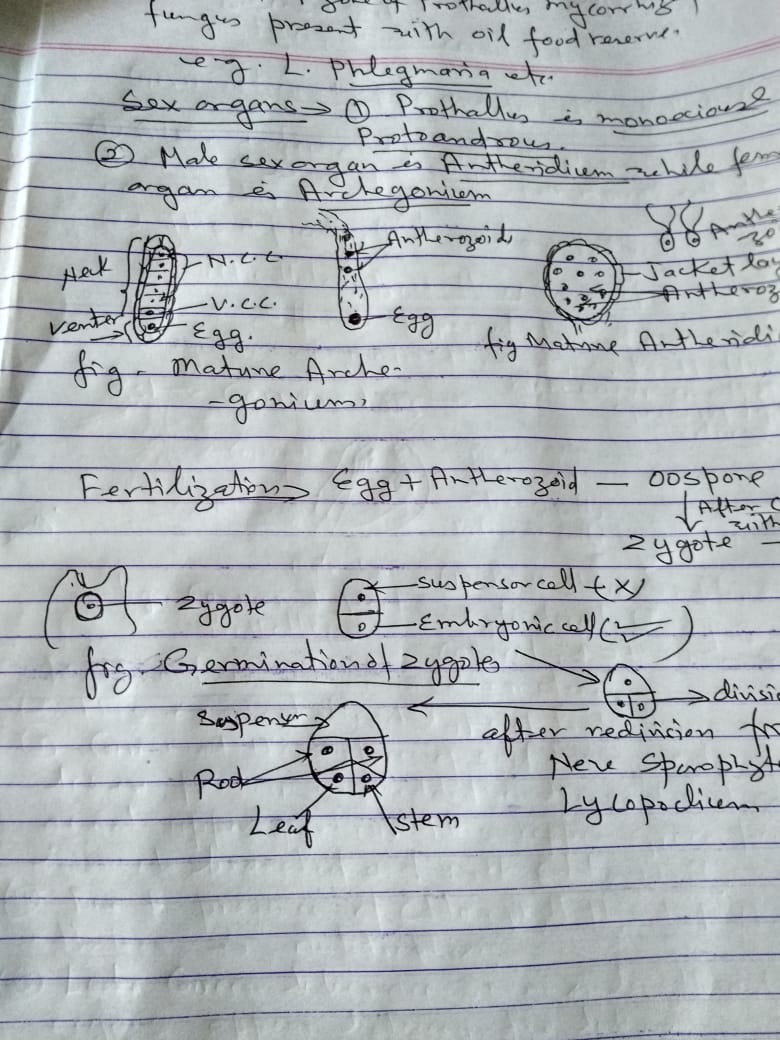 Prothallus mycorrhiz
fungus present with oil food reserve.
e.g. L. Phlegmaria etc.
Sex organs → ① Prothallus is monoecious &
Protoandrous.
② Male sex organ is Antheridium while fem
organ is Archegonium
Neck
N.C.C
V.C.C.
Venter
Egg.
fig - Mature Arche-
-gonium,
Antherozoids
Egg
Anthe
zo
Jacket lay
Antheroz
fig Mature Antheridi
Fertilization → Egg + Antherozoid — oospore
↓ After
with
zygote —
zygote
suspensor cell (x)
Embryonic cell (✓)
fig. Germination of zygote
divisi
Suspensor
after redivision
Root
New Sporophyt
Leaf
stem
Lycopodium